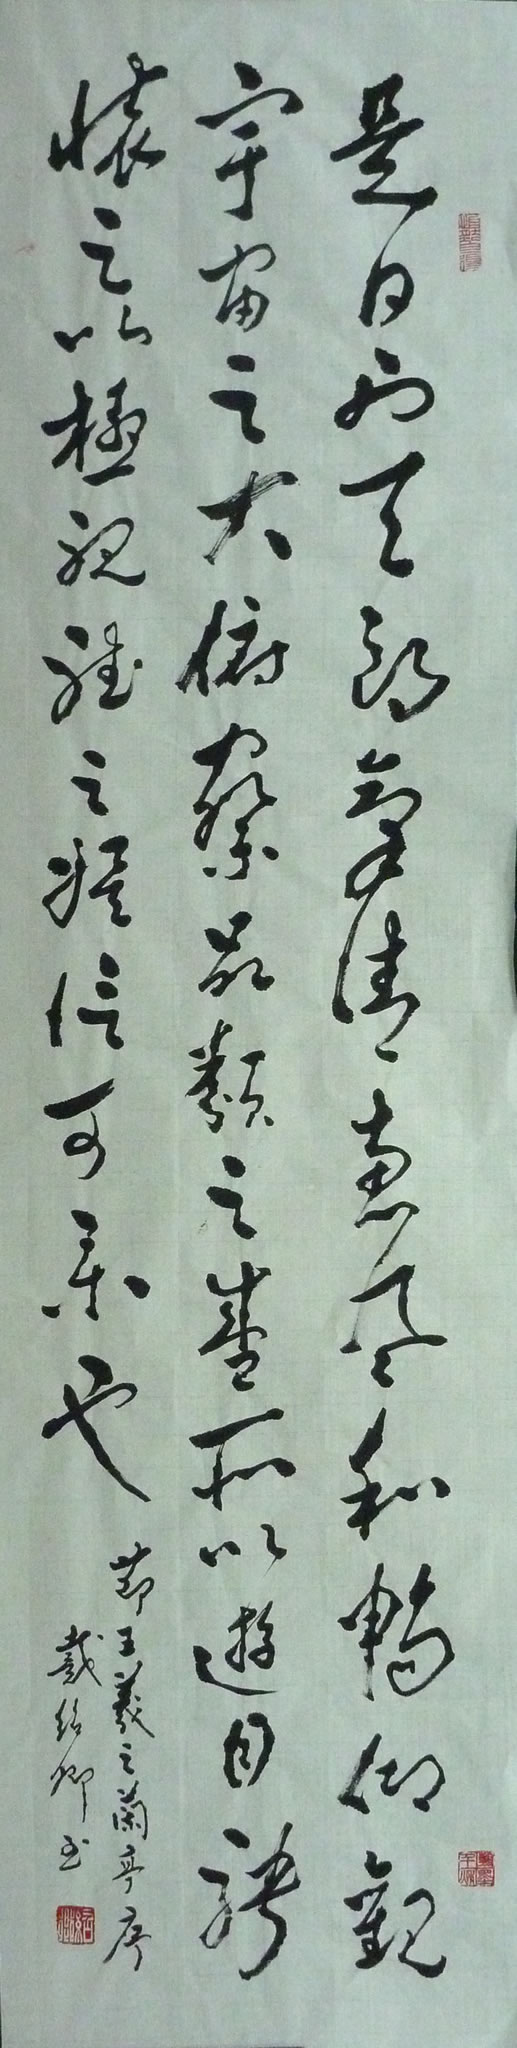 是日也天朗氣清惠風和暢仰觀
宇宙之大俯察品類之盛所以遊目騁
懷足以極視聽之娛信可樂也
節王羲之蘭亭序
戴紹卿书